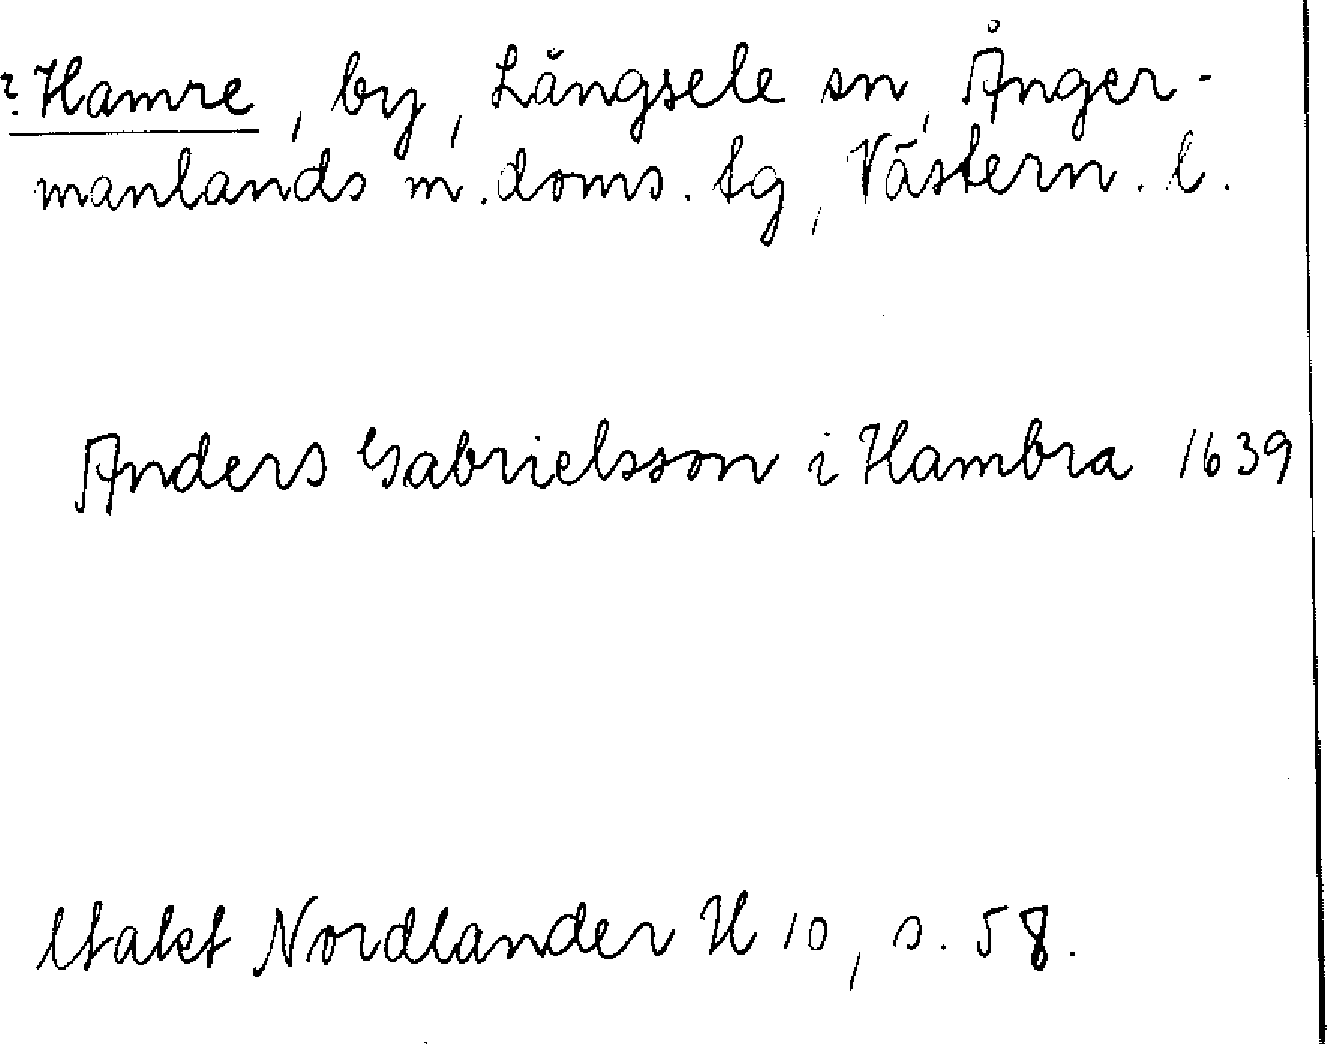 ? Hamre, by, Långsele sn, Ånger-
manlands m. doms. tg, Västern. l.
Anders Gabrielsson i Hambra 1639
Nordlander H 10, s. 58.